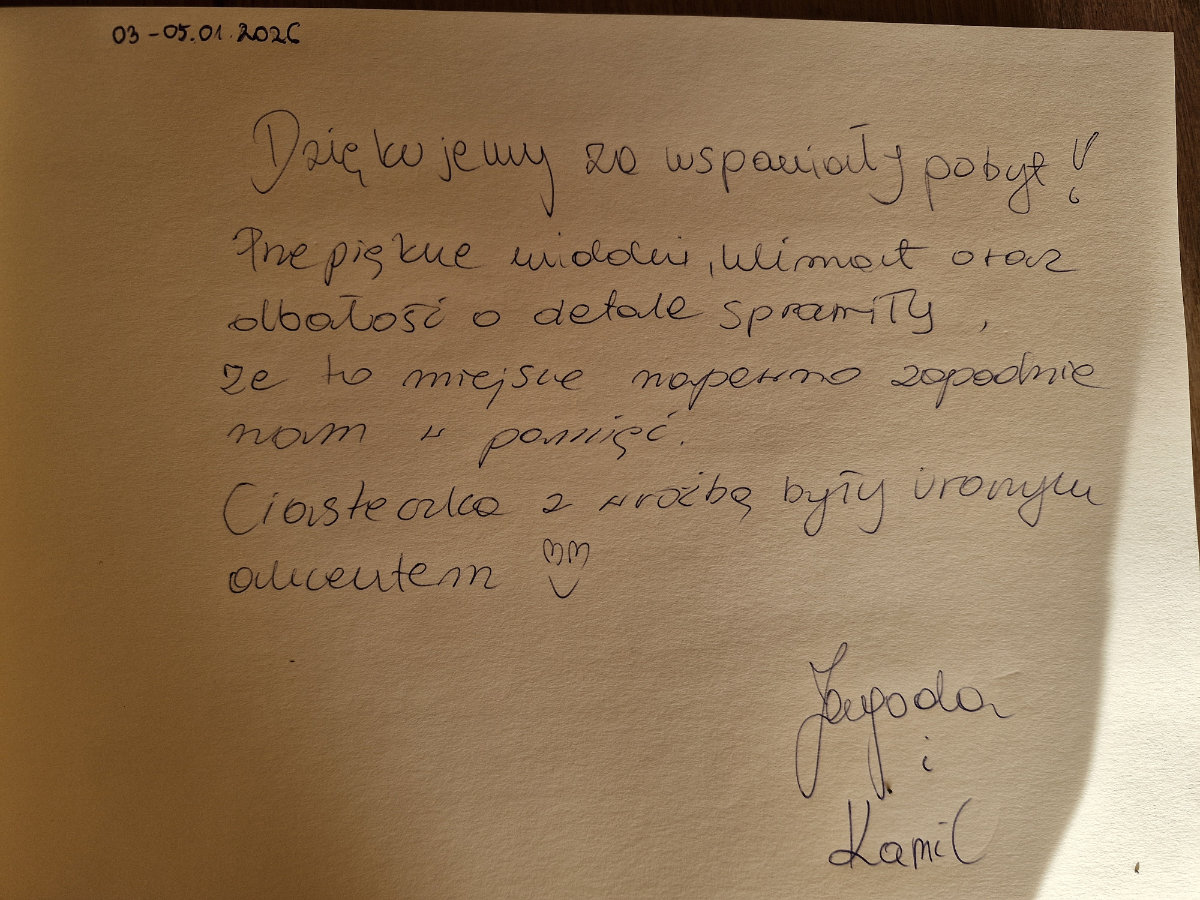 03-05.01.2026
Dziękujemy za wspaniały pobyt!
Przepiękne widoki, klimat oraz
dbałość o detale sprawiły,
że to miejsce napewno zapadnie
nam w pamięć.
Ciasteczka z wróżbą były uroczym
akcentem
Jagoda
i
Kamil